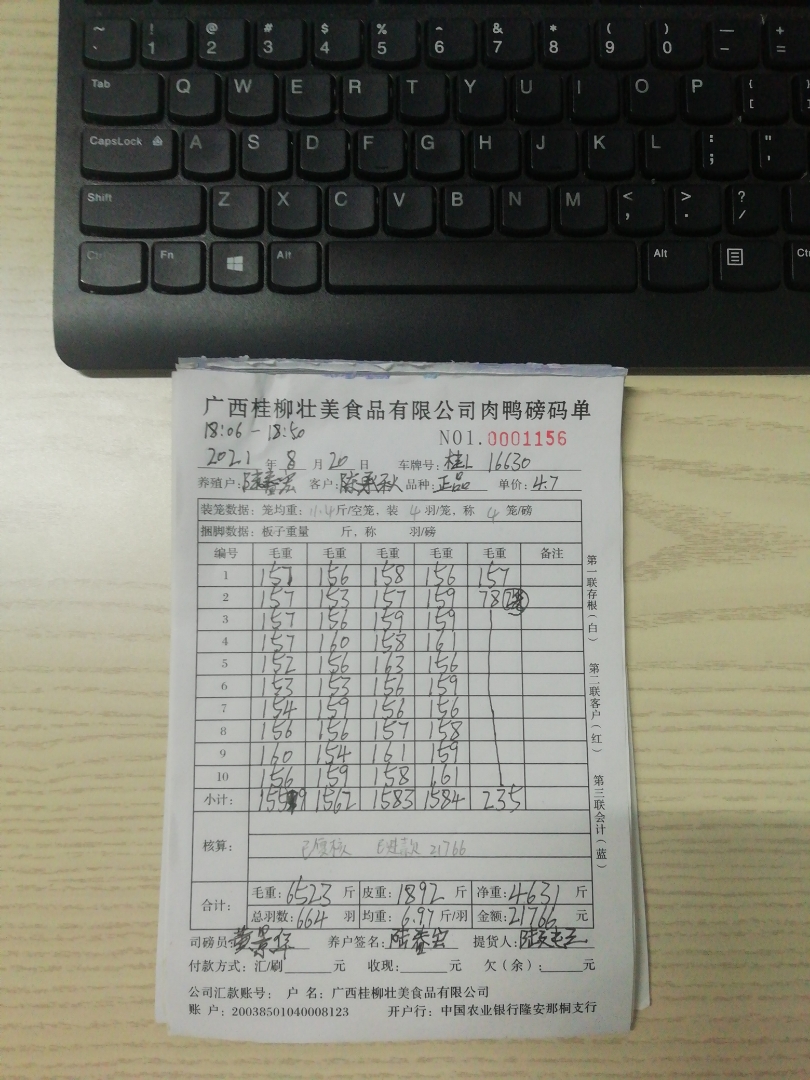 ~ ! @ # $ % ^ & * ( ) — +
` 1 2 3 4 5 6 7 8 9 0 - =
Tab Q W E R T Y U I O P { [
CapsLock A S D F G H J K L : ; " '
Shift Z X C V B N M < , > . ? /
Fn Alt Alt Ctr
广西桂柳壮美食品有限公司肉鸭磅码单
18:06-18:50
NO1.0001156
2021年8月20日 车牌号:桂L 16630
养殖户: 客户:陈承秋 品种:正品 单价:4.7
装笼数据:笼均重:11.4斤/空笼,装4羽/笼,称4笼/磅
捆脚数据:板子重量 斤,称 羽/磅
编号 毛重 毛重 毛重 毛重 毛重 备注
1 157 156 158 156 157
2 157 153 157 159 78
3 157 156 159 159
4 157 160 158 161
5 152 156 163 156
6 153 153 156 159
7 154 159 156 156
8 156 156 157 158
9 160 154 161 159
10 156 159 158 161
小计: 1559 1562 1583 1584 235
核算: 已复核 已进款 21766
合计: 毛重:6523斤 皮重:1892斤 净重:4631斤
总羽数:664羽 均重:6.97斤/羽 金额:21766元
司磅员:黄景华 养户签名: 提货人:
付款方式:汇/刷 元 收现: 元 欠(余): 元
公司汇款账号: 户 名:广西桂柳壮美食品有限公司
账 户:20038501040008123 开户行:中国农业银行隆安那桐支行
第一联存根(白)
第二联客户(红)
第三联会计(蓝)